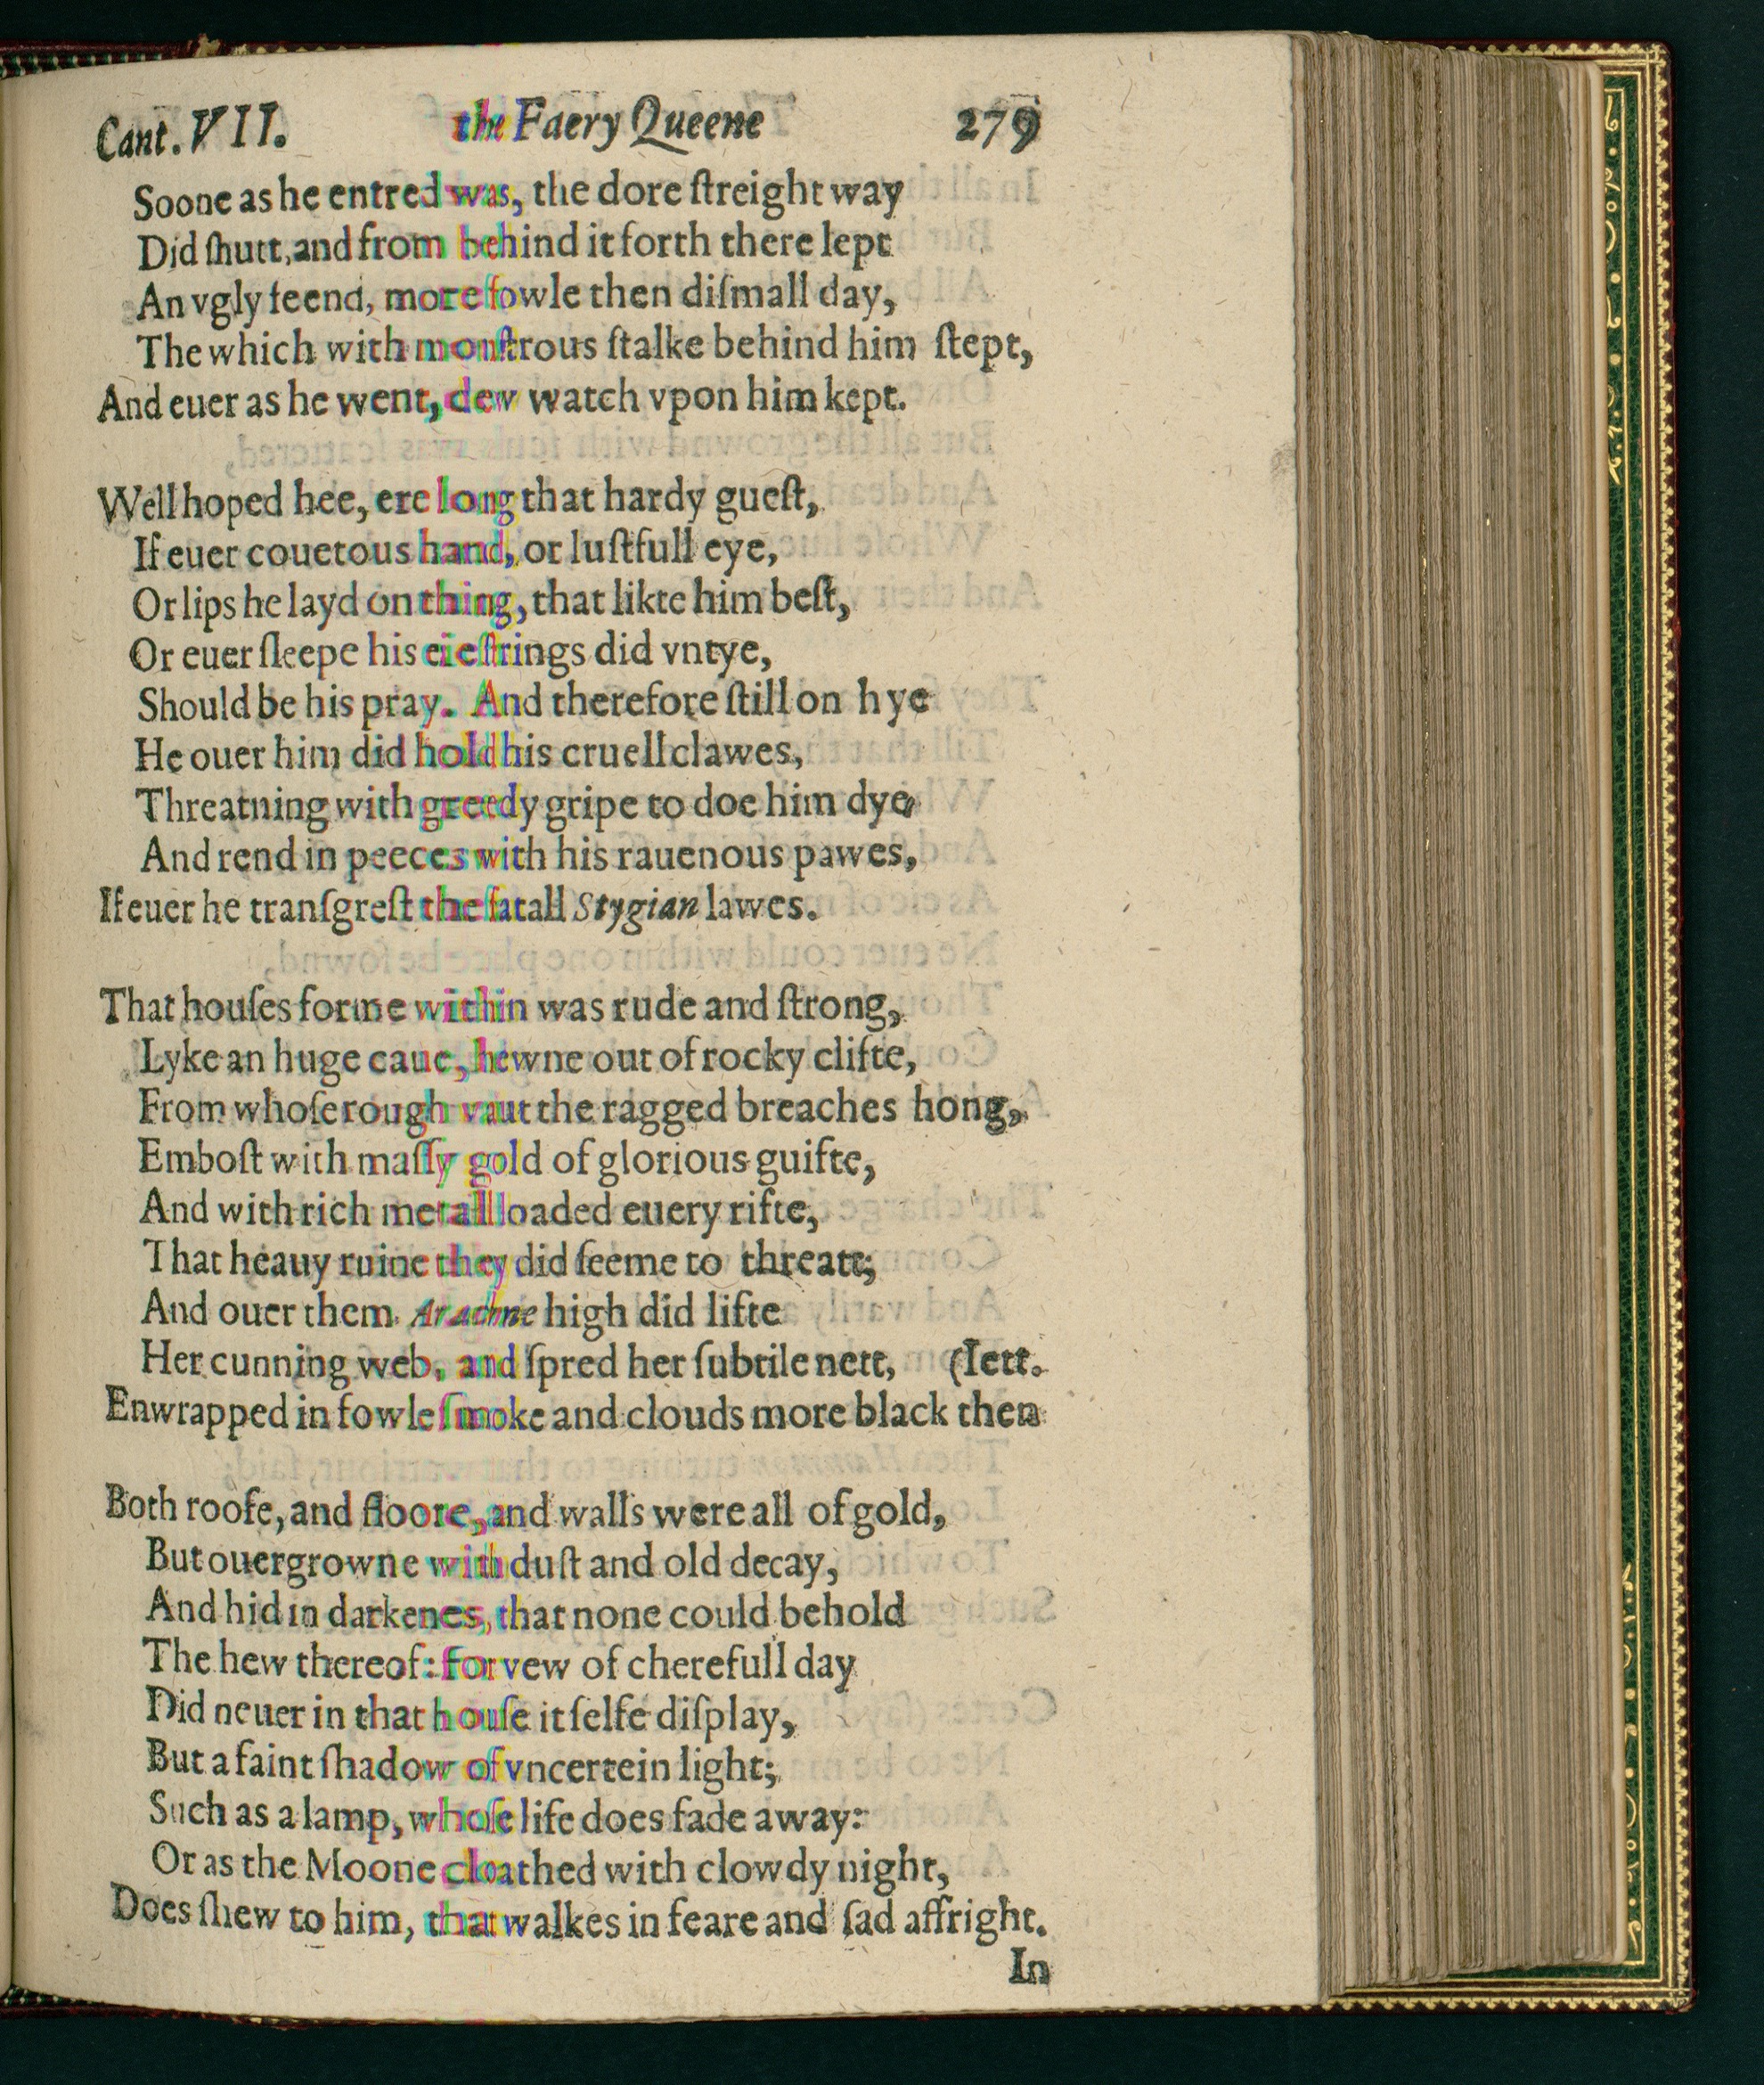 Cant. VII. the Faery Queene 279
Soone as he entred was, the dore ſtreight way
Did ſhutt, and from behind it forth there lept
An vgly feend, more fowle then diſmall day,
The which with monſtrous ſtalke behind him ſtept,
And euer as he went, dew watch vpon him kept.
Well hoped hee, ere long that hardy gueſt,
If euer couetous hand, or luſtfull eye,
Or lips he layd on thing, that likte him beſt,
Or euer ſleepe his eie ſtrings did vntye,
Should be his pray. And therefore ſtill on hye
He ouer him did hold his cruell clawes,
Threatning with greedy gripe to doe him dye
And rend in peeces with his rauenous pawes,
If euer he tranſgreſt the fatall Stygian lawes.
That houſes forme within was rude and ſtrong,
Lyke an huge caue, hewne out of rocky clifte,
From whoſe rough vaut the ragged breaches hong,
Emboſt with maſſy gold of glorious guifte,
And with rich metall loaded euery rifte,
That heauy ruine they did ſeeme to threatt;
And ouer them Arachne high did lifte
Her cunning web, and ſpred her ſubtile nett, (Iett.
Enwrapped in fowle ſmoke and clouds more black then
Both roofe, and floore, and walls were all of gold,
But ouergrowne with duſt and old decay,
And hid in darkenes, that none could behold
The hew thereof: for vew of cherefull day
Did neuer in that houſe it ſelfe diſplay,
But a faint ſhadow of vncertein light;
Such as a lamp, whoſe life does fade away:
Or as the Moone cloathed with clowdy night,
Does ſhew to him, that walkes in feare and ſad affright.
In